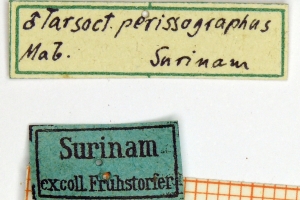 ♂ Tarsoct. perissographus
Mab. Surinam
Surinam
ex coll. Fruhstorfer